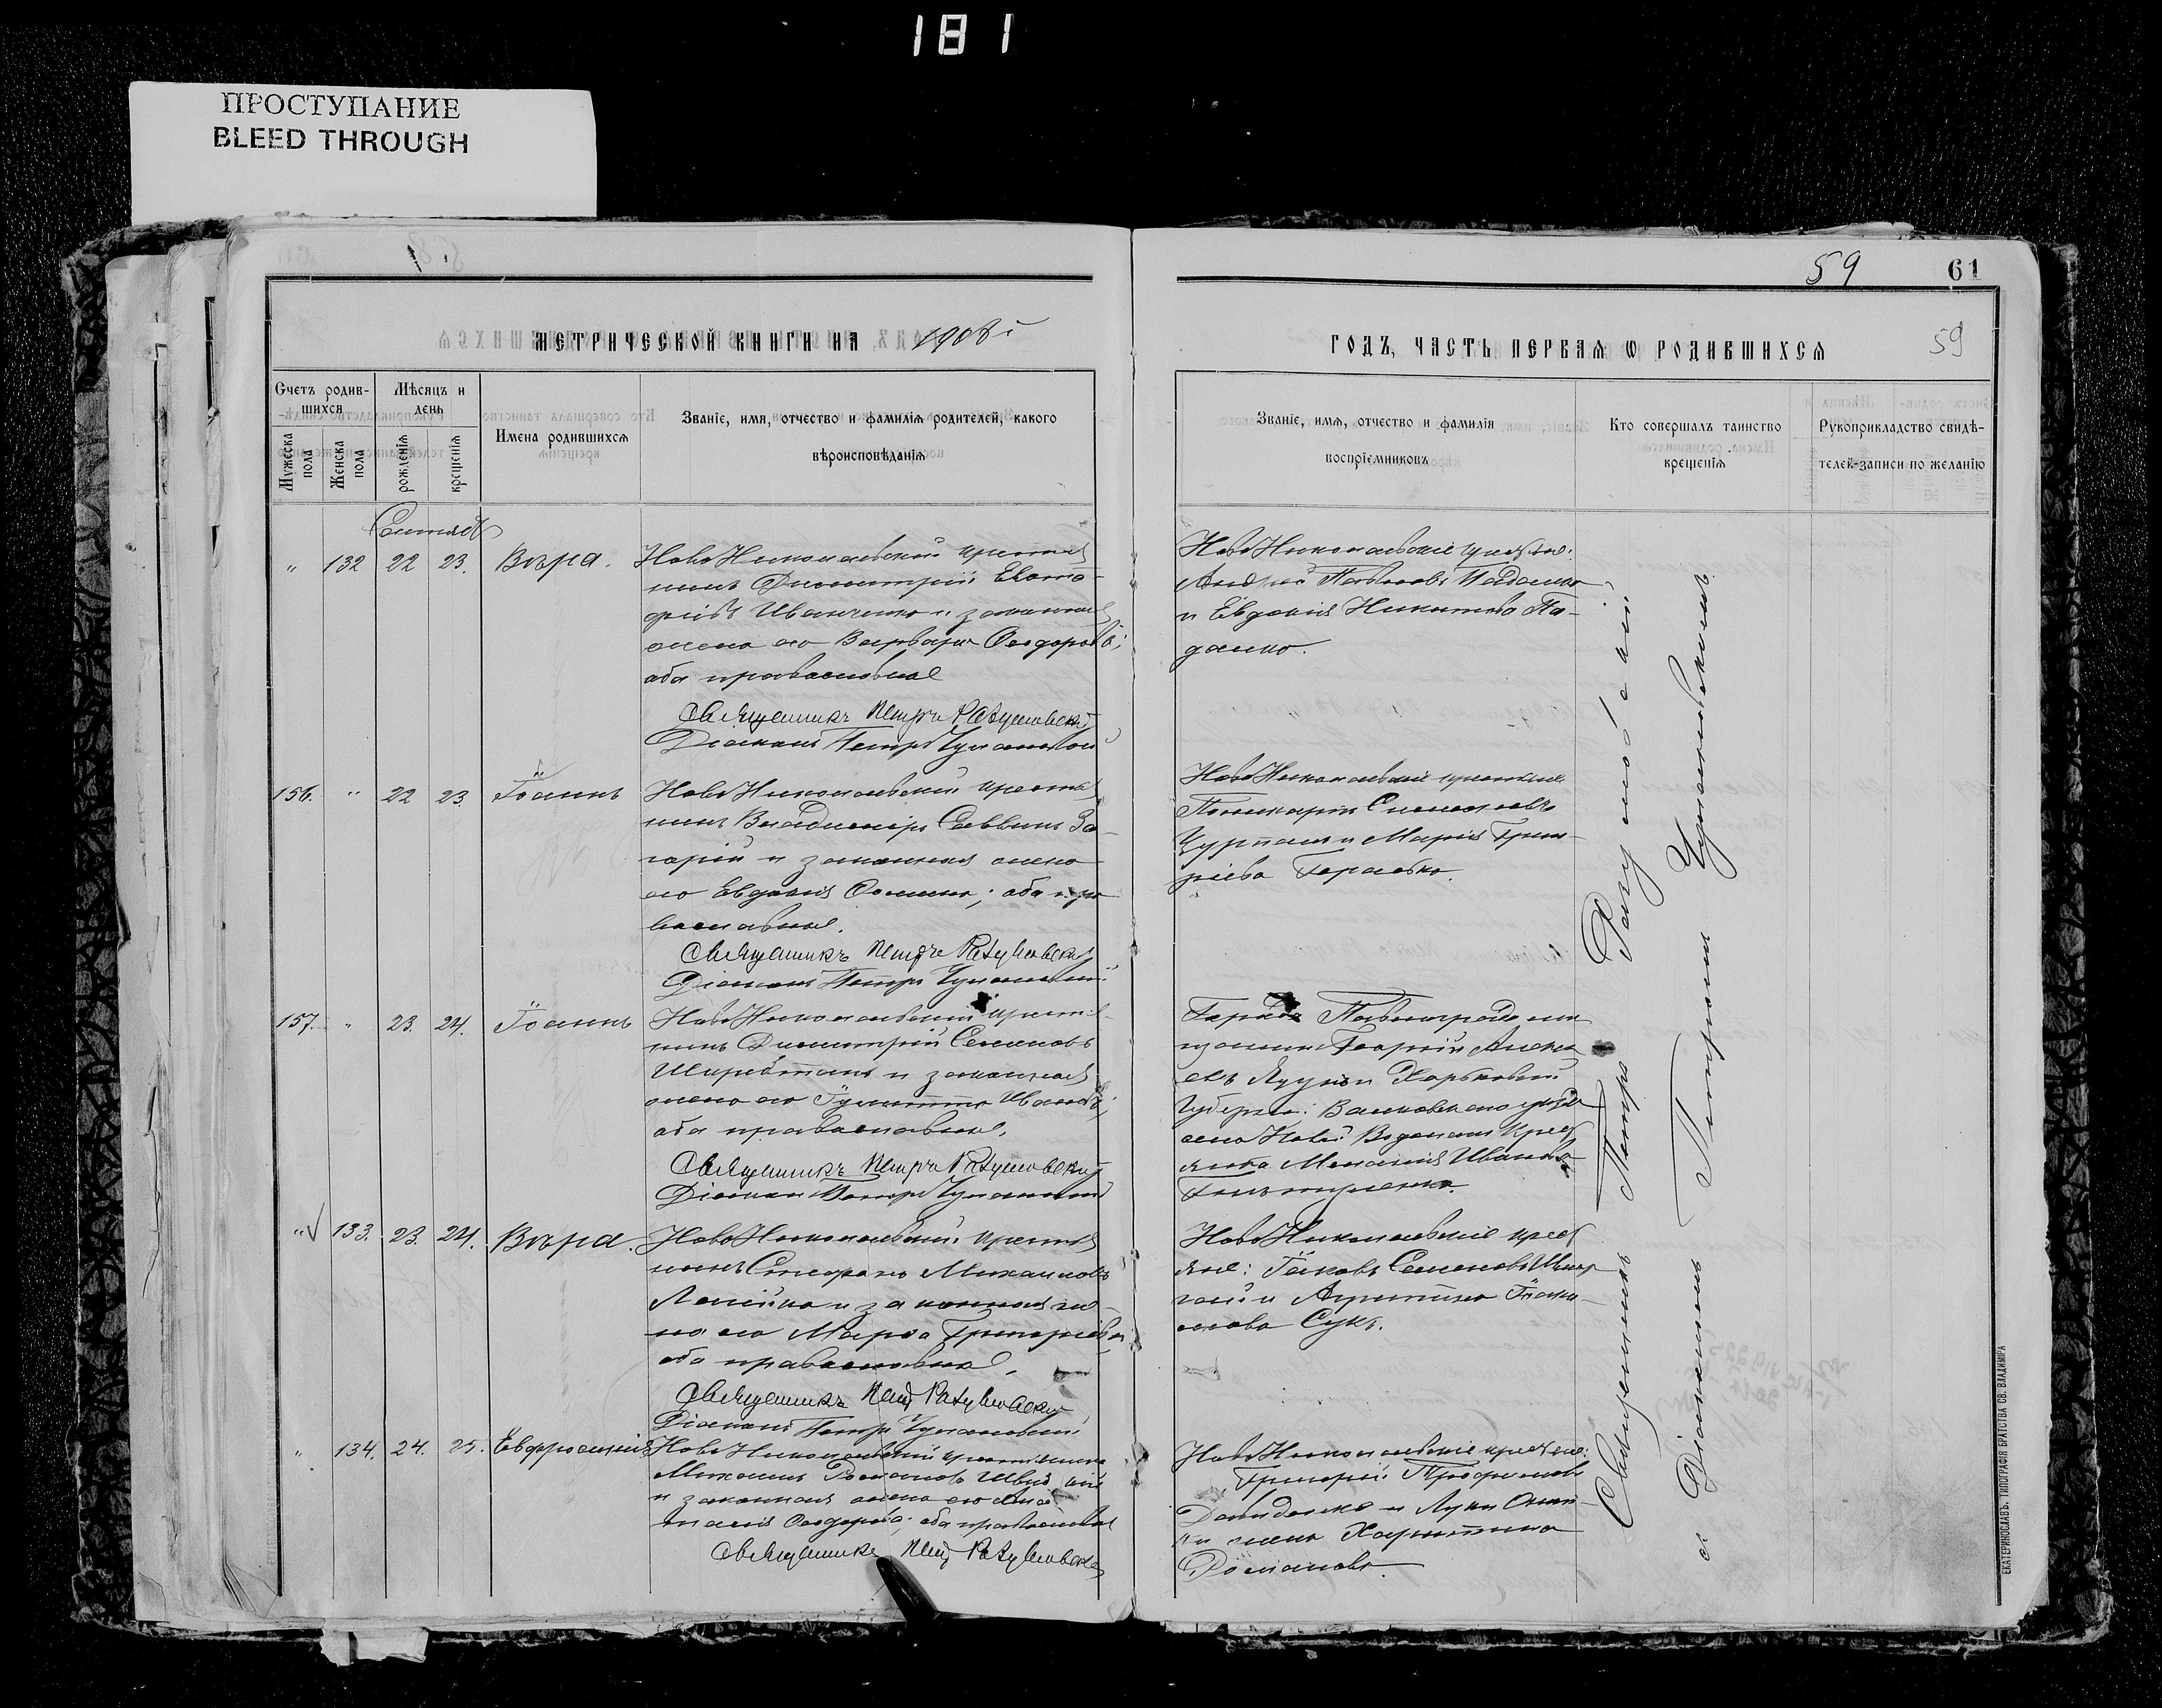 181
ПРОСТУПАНИЕ
BLEED THROUGH
59
61
59
МЕТРИЧЕСКОЙ КНИГИ НА 1908й
ГОДЪ, ЧАСТЬ ПЕРВАЯ Ѡ РОДИВШИХСЯ
Счетъ родив-
шихся
Мужеска пола
Женска пола
Мѣсяцъ и
день
рожденія
крещенія
Имена родившихся
Званіе, имя, отчество и фамилія родителей, какого
вѣроисповѣданія
Званіе, имя, отчество и фамилія
воспріемниковъ
Кто совершалъ таинство
крещенія
Рукоприкладство свидѣ-
телей-записи по желанію
" 132 22 23. Вѣра.
НовоНиколаевскій крестья
нинъ Димитрій Евста-
фіевъ Иванченко и законная
жена его Варвара Ѳеодорова;
оба православные
Священникъ Петръ Разумовскій
Діаконъ Петръ
НовоНиколаевскіе
Андрей Павловъ Падалко
и Евдокія Никитова Па-
далко.
156. " 22 23. Іоаннъ
НовоНиколаевскій крестья
нинъ Владиміръ Саввинъ За-
гарій и законная жена
его Евдокія Ѳомина; оба пра
вославные.
Священникъ Петръ Разумовскій
Діаконъ Петръ
НовоНиколаевскіе крестьяне
Поликарпъ Симеоновъ
и Марія Григо-
ріева
157. " 23. 24. Іоаннъ
НовоНиколаевскій крестья-
нинъ Димитрій Семеновъ
и законная
жена его Іулитта Иванова;
оба православные.
Священникъ Петръ Разумовскій
Діаконъ Петръ
Города Павлограда мѣ
щанинъ Георгій
и Харьковской
Губерніи: Валковскаго уѣзда
села Новой Водолаги крест
янка Меланія Иванова
" 133. 23. 24. Вѣра.
НовоНиколаевскій крестья
нинъ Стефанъ Михаиловъ
и законная же-
на его Марѳа Григоріева
оба православные,
Священникъ Петръ Разумовскій
Діаконъ Петръ
НовоНиколаевскіе крест
яне: Іаковъ Семеновъ
и Агриппина Іоаки-
мова Сукъ.
" 134. 24. 25. Евфросинія
НовоНиколаевскій крестьянинъ
Михаилъ Романовъ
и законная жена его Анас
тасія Ѳеодорова; оба православные
Священникъ Петръ Разумовскій
НовоНиколаевскіе
Григорій Трофимовъ
и Луки
жена Харитина
Романова.
Священникъ Петръ Разумовскій
и Діакономъ Петромъ
ЕКАТЕРИНОСЛАВЪ. ТИПОГРАФІЯ БРАТСТВА СВ. ВЛАДИМІРА